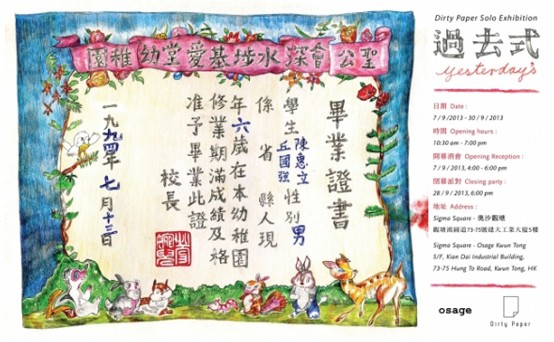 聖公會深水埗基愛堂幼稚園
畢業證書
學生陳惠立 五國強性別男
係 省 縣人現
年六歲在本幼稚園
修業期滿成績及格
准予畢業此證
校長
一九九四年七月十三日
Dirty Paper Solo Exhibition
過去式
yesterday's
日期 Date :
7 / 9 /2013 - 30 / 9 / 2013
時間 Opening hours :
10:30 am - 7:00 pm
開幕酒會 Opening Reception :
7 / 9 /2013, 4:00 - 6:00 pm
閉幕派對 Closing party :
28 / 9 /2013, 6:00 pm
地址 Address :
Sigma Square - 奧沙觀塘
觀塘鴻圖道73-75號建大工業大廈5樓
Sigma Square - Osage Kwun Tong
5/F, Kian Dai Industrial Building,
73-75 Hung To Road, Kwun Tong, HK
osage
Dirty Paper